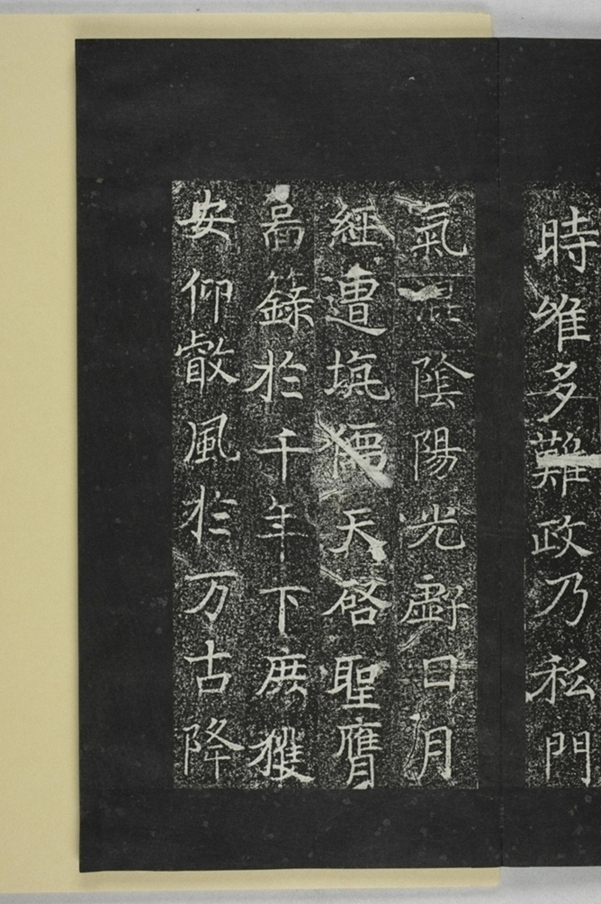 時維多難政乃私門
氣陰陽光虧日月
經遭天啓聖膺
啚籙扵千年下庶獲
安仰叡風扵万古降